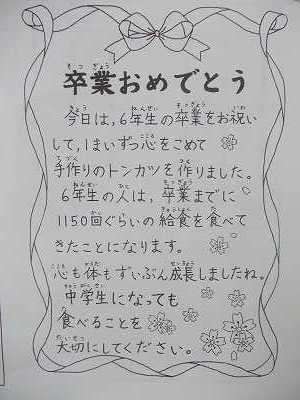 卒業おめでとう
今日は,6年生の卒業をお祝い
して,1まいずつ心をこめて
手作りのトンカツを作りました。
6年生の人は,卒業までに
1150回ぐらいの給食を食べて
きたことになります。
心も体もずいぶん成長しましたね。
中学生になっても
食べることを
大切にしてください。